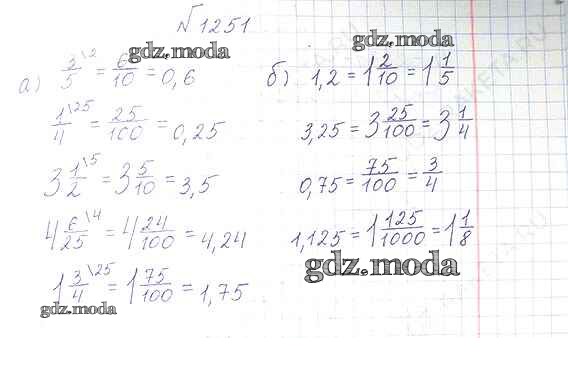 №1251
gdz.moda
gdz.moda
а) 3\2/5 = 6/10 = 0,6
1\25/4 = 25/100 = 0,25
3 1\5/2 = 3 5/10 = 3,5
4 6\4/25 = 4 24/100 = 4,24
1 3\25/4 = 1 75/100 = 1,75
gdz.moda
б) 1,2 = 1 2/10 = 1 1/5
3,25 = 3 25/100 = 3 1/4
0,75 = 75/100 = 3/4
1,125 = 1 125/1000 = 1 1/8
gdz.moda